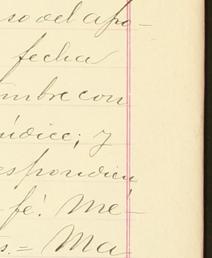 so del apo-
fecha
mbre con
índice; y
espondien
fé. Mé-
s. = Ma